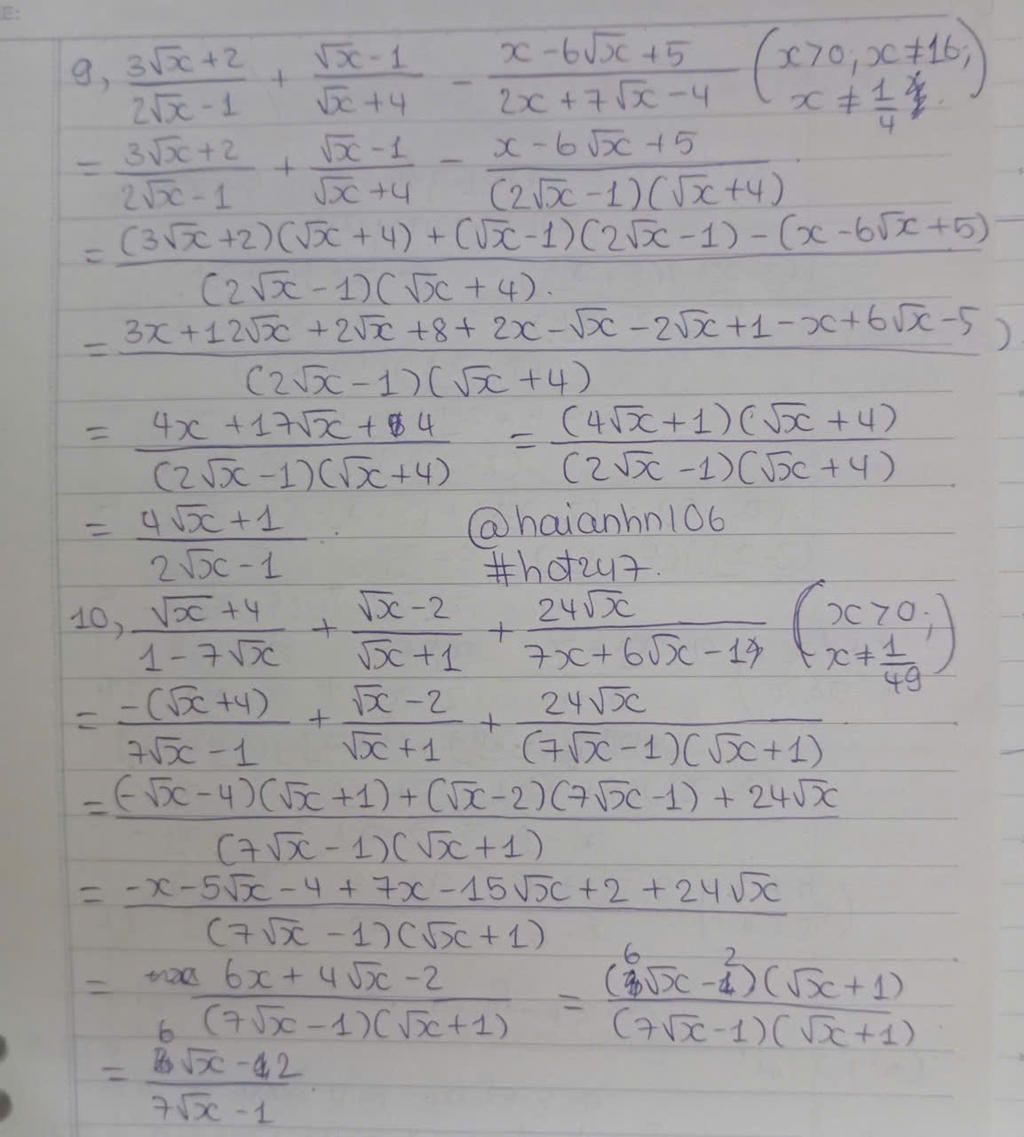 E:
9, (3√x+2)/(2√x-1) + (√x-1)/(√x+4) - (x-6√x+5)/(2x+7√x-4) (x>0; x≠16; x≠1/4)
= (3√x+2)/(2√x-1) + (√x-1)/(√x+4) - (x-6√x+5)/((2√x-1)(√x+4))
= ((3√x+2)(√x+4)+(√x-1)(2√x-1)-(x-6√x+5))/((2√x-1)(√x+4)).
= (3x+12√x+2√x+8+2x-√x-2√x+1-x+6√x-5)/((2√x-1)(√x+4))
= (4x+17√x+4)/((2√x-1)(√x+4)) = ((4√x+1)(√x+4))/((2√x-1)(√x+4))
= (4√x+1)/(2√x-1) @haianhn106
#hot247.
10, (√x+4)/(1-7√x) + (√x-2)/(√x+1) + (24√x)/(7x+6√x-1) (x>0; x≠1/49)
= (-(√x+4))/(7√x-1) + (√x-2)/(√x+1) + (24√x)/((7√x-1)(√x+1))
= ((-√x-4)(√x+1)+(√x-2)(7√x-1)+24√x)/((7√x-1)(√x+1))
= (-x-5√x-4+7x-15√x+2+24√x)/((7√x-1)(√x+1))
= (6x+4√x-2)/((7√x-1)(√x+1)) = ((6√x-2)(√x+1))/((7√x-1)(√x+1))
= (6√x-2)/(7√x-1)